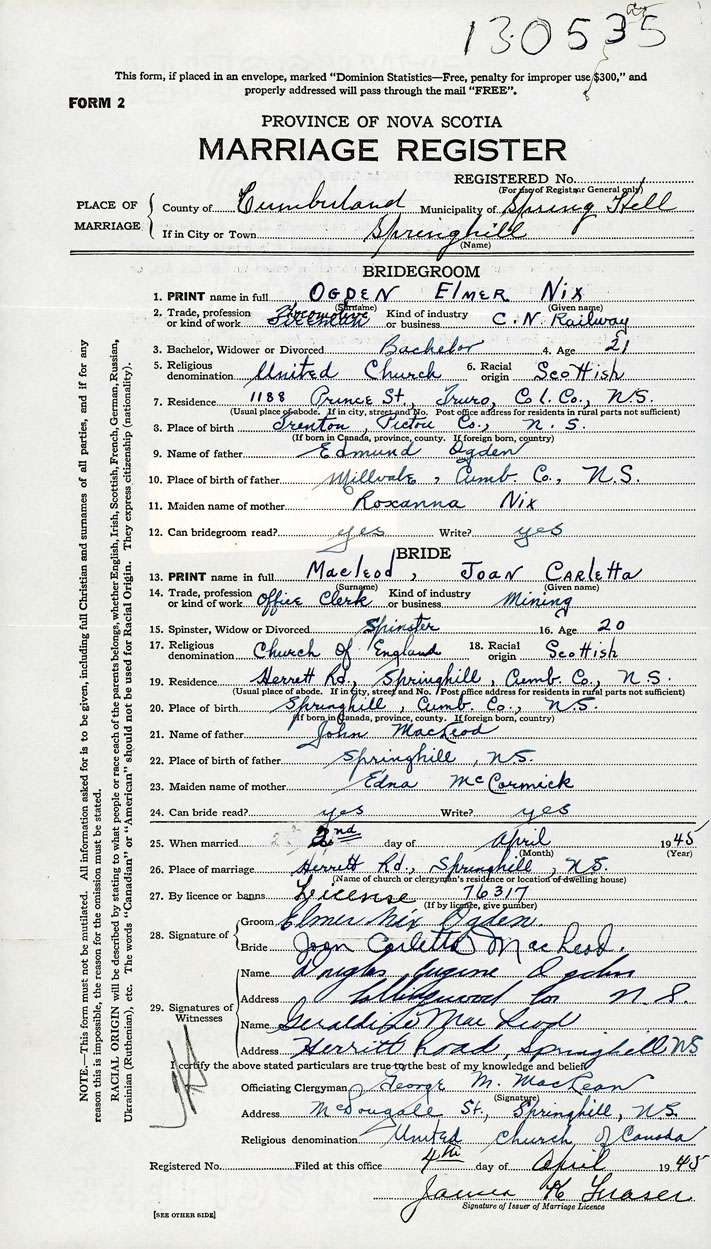 130535
This form, if placed in an envelope, marked “Dominion Statistics—Free, penalty for improper use $300,” and
properly addressed will pass through the mail “FREE”.
FORM 2
PROVINCE OF NOVA SCOTIA
MARRIAGE REGISTER
REGISTERED No.
(For use of Registrar General only)
PLACE OF MARRIAGE
County of Cumberland Municipality of Spring Hill
If in City or Town Springhill
(Name)
BRIDEGROOM
1. PRINT name in full OGDEN ELMER NIX
(Surname) (Given name)
2. Trade, profession or kind of work Locomotive Fireman Kind of industry or business C.N. Railway
3. Bachelor, Widower or Divorced Bachelor 4. Age 21
5. Religious denomination United Church 6. Racial origin Scottish
7. Residence 1188 Prince St., Truro, Col. Co., N.S.
(Usual place of abode. If in city, street and No. Post office address for residents in rural parts not sufficient)
8. Place of birth Trenton, Pictou Co., N.S.
(If born in Canada, province, county. If foreign born, country)
9. Name of father Edmund Ogden
10. Place of birth of father Millvale, Cumb. Co., N.S.
11. Maiden name of mother Roxanna Nix
12. Can bridegroom read? yes Write? yes
BRIDE
13. PRINT name in full MacLeod, JOAN CARLETTA
(Surname) (Given name)
14. Trade, profession or kind of work Office Clerk Kind of industry or business Mining
15. Spinster, Widow or Divorced Spinster 16. Age 20
17. Religious denomination Church of England 18. Racial origin Scottish
19. Residence Herrett Rd., Springhill, Cumb. Co., N.S.
(Usual place of abode. If in city, street and No. Post office address for residents in rural parts not sufficient)
20. Place of birth Springhill, Cumb. Co., N.S.
(If born in Canada, province, county. If foreign born, country)
21. Name of father John MacLeod
22. Place of birth of father Springhill, N.S.
23. Maiden name of mother Edna McCormick
24. Can bride read? yes Write? yes
25. When married 2nd day of April 1945
(Month) (Year)
26. Place of marriage Herrett Rd., Springhill, N.S.
(Name of church or clergyman's residence or location of dwelling house)
27. By licence or banns License 76317
(If by licence, give number)
28. Signature of
Groom Elmer Nix Ogden
Bride Joan Carletta MacLeod.
29. Signatures of Witnesses
Name Douglas Eugene Ogden
Address Collingwood Cor N.S.
Name Geraldine MacLeod
Address Herritt Road, Springhill NS
I certify the above stated particulars are true to the best of my knowledge and belief.
Officiating Clergyman George M. MacLean
(Signature)
Address McDougale St., Springhill, N.S.
Religious denomination United Church of Canada
Registered No. Filed at this office 4th day of April 1945
James K Fraser
Signature of Issuer of Marriage Licence
[SEE OTHER SIDE]
NOTE.—This form must not be mutilated. All information asked for is to be given, including full Christian and surnames of all parties, and if for any
reason this is impossible, the reason for the omission must be stated.
RACIAL ORIGIN will be described by stating to what people or race each of the parents belongs, whether English, Irish, Scottish, French, German, Russian,
Ukrainian (Ruthenian), etc. The words “Canadian” or “American” should not be used for Racial Origin. They express citizenship (nationality).